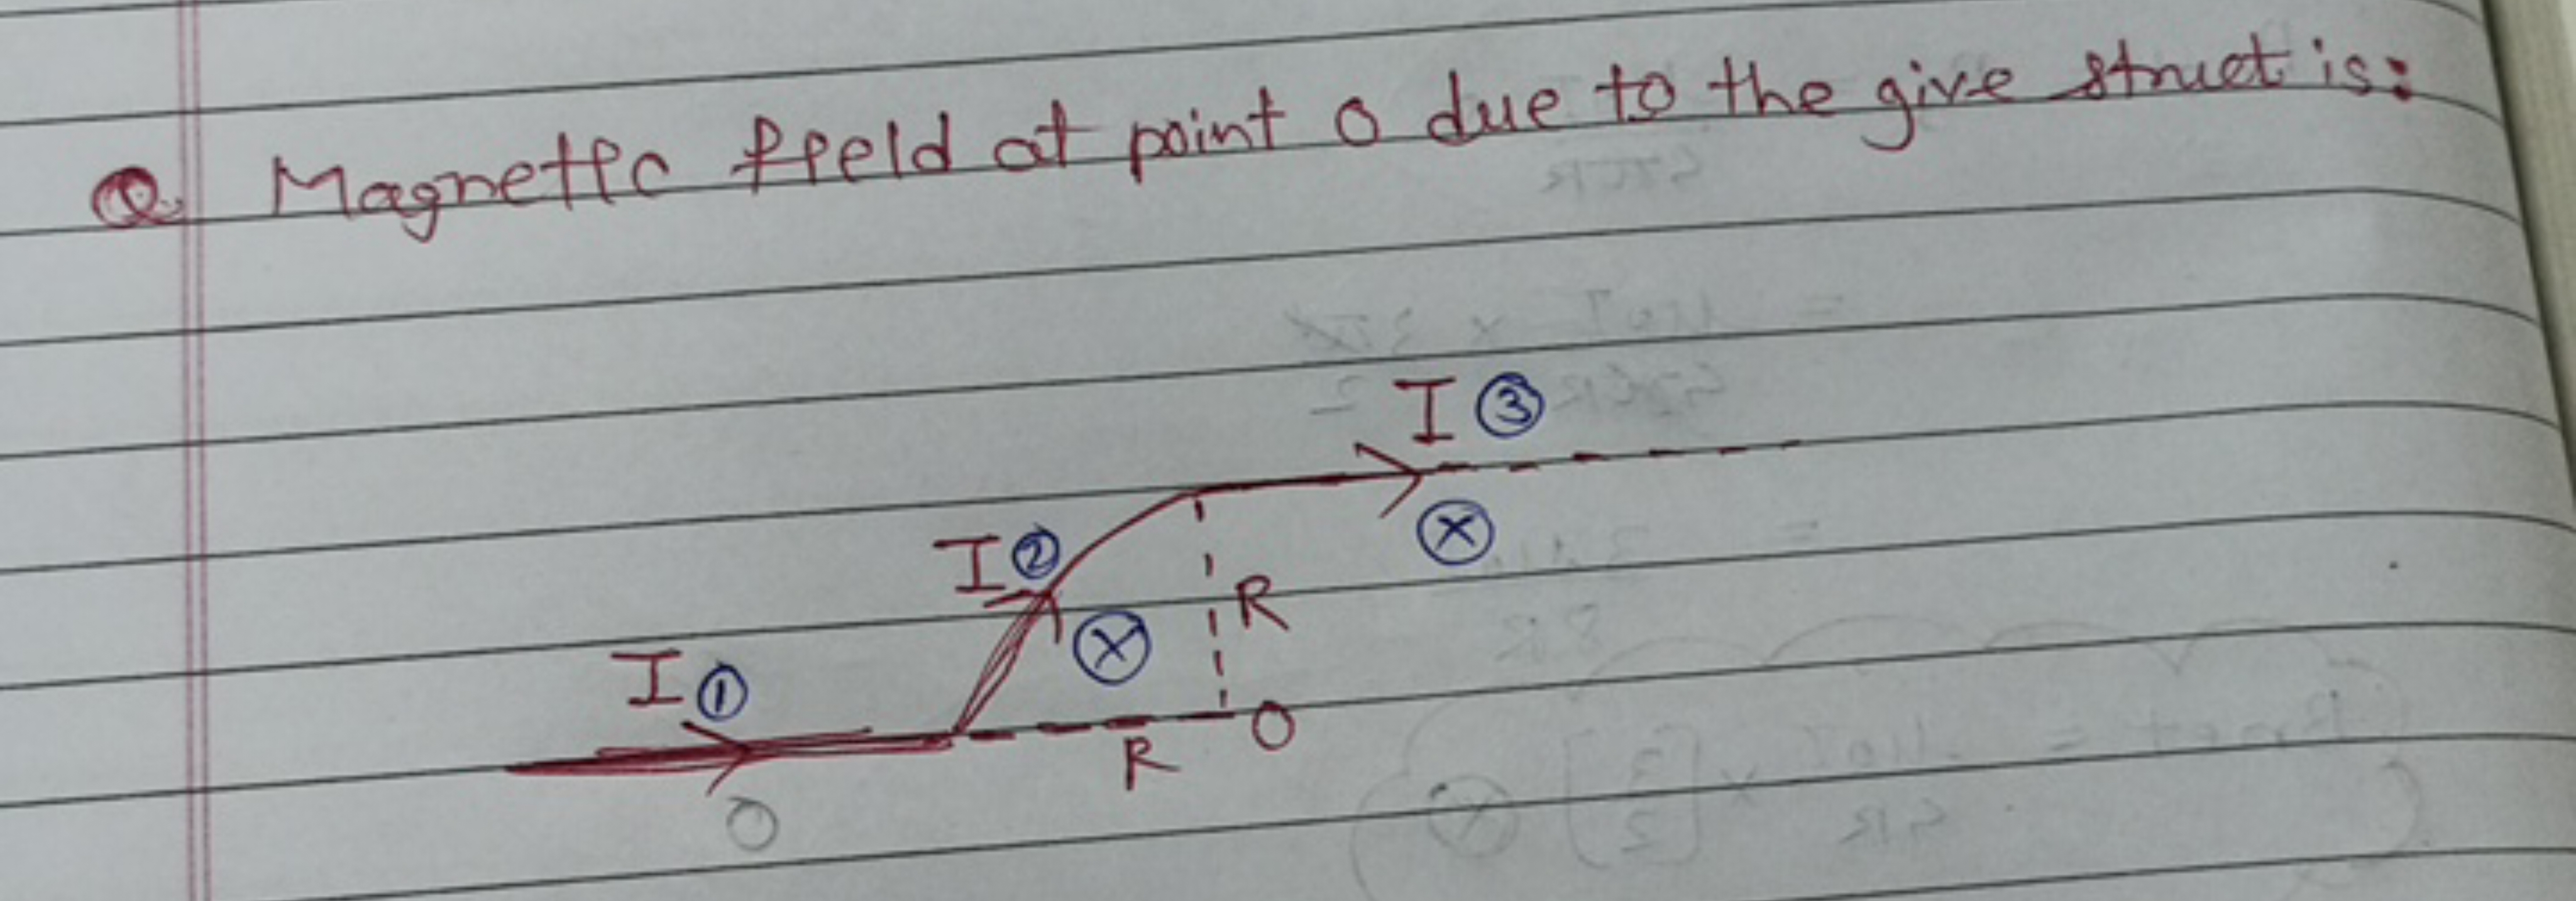 Q Magnetic field at point O due to the give struct is:
I ③
I ②
ⓧ
ⓧ
R
I ①
O
R
O